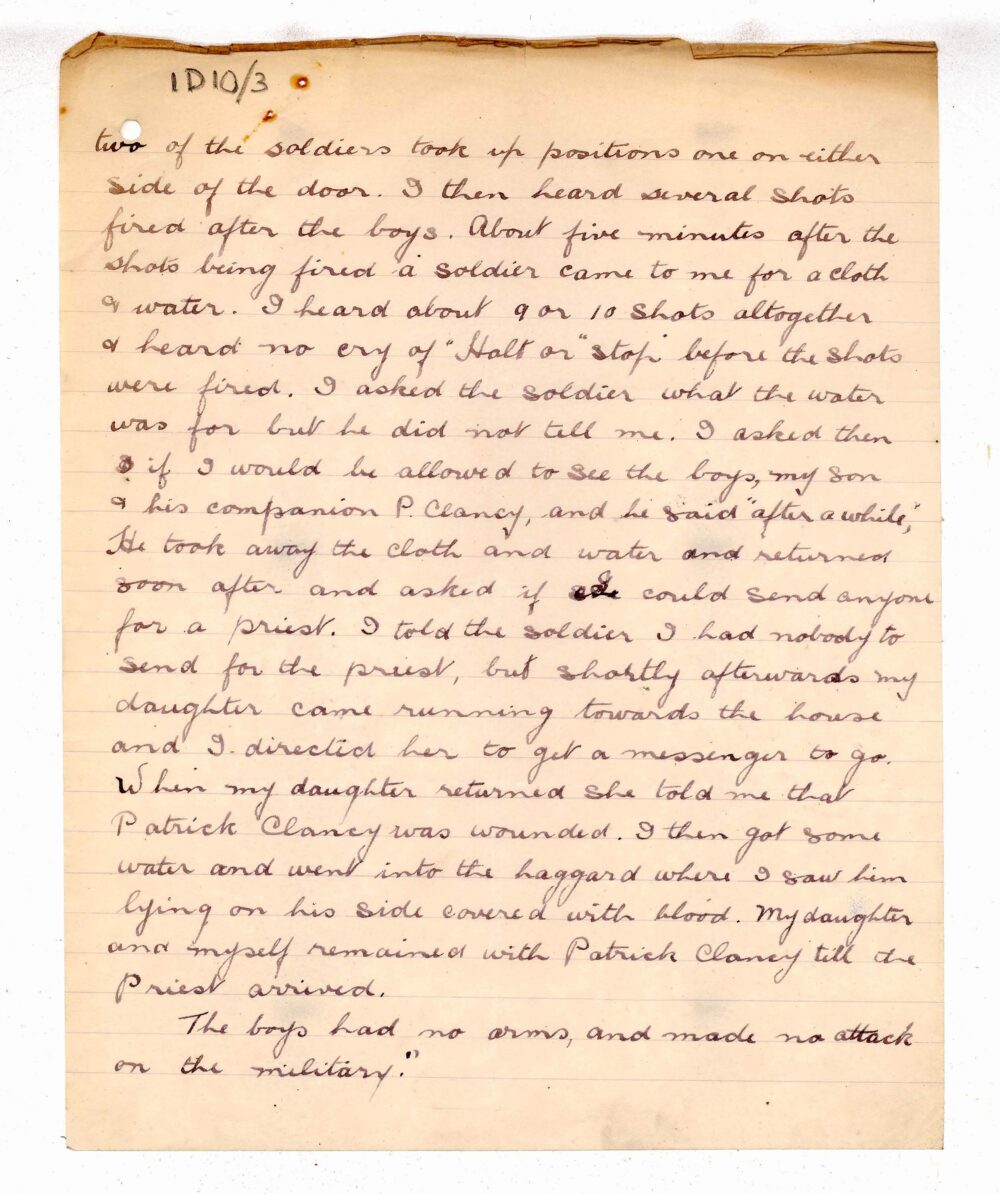 1D10/3
two of the soldiers took up positions one on either
side of the door. I then heard several shots
fired after the boys. About five minutes after the
shots being fired a soldier came to me for a cloth
& water. I heard about 9 or 10 shots altogether
& heard no cry of "Halt or" stop before the shots
were fired. I asked the soldier what the water
was for but he did not tell me. I asked then
if I would be allowed to see the boys, my son
& his companion P. Clancy, and he said "after a while",
He took away the cloth and water and returned
soon after and asked if I could send anyone
for a priest. I told the soldier I had nobody to
send for the priest, but shortly afterwards my
daughter came running towards the house
and I directed her to get a messenger to go.
When my daughter returned she told me that
Patrick Clancy was wounded. I then got some
water and went into the haggard where I saw him
lying on his side covered with blood. My daughter
and myself remained with Patrick Clancy till the
Priest arrived.
The boys had no arms, and made no attack
on the military."